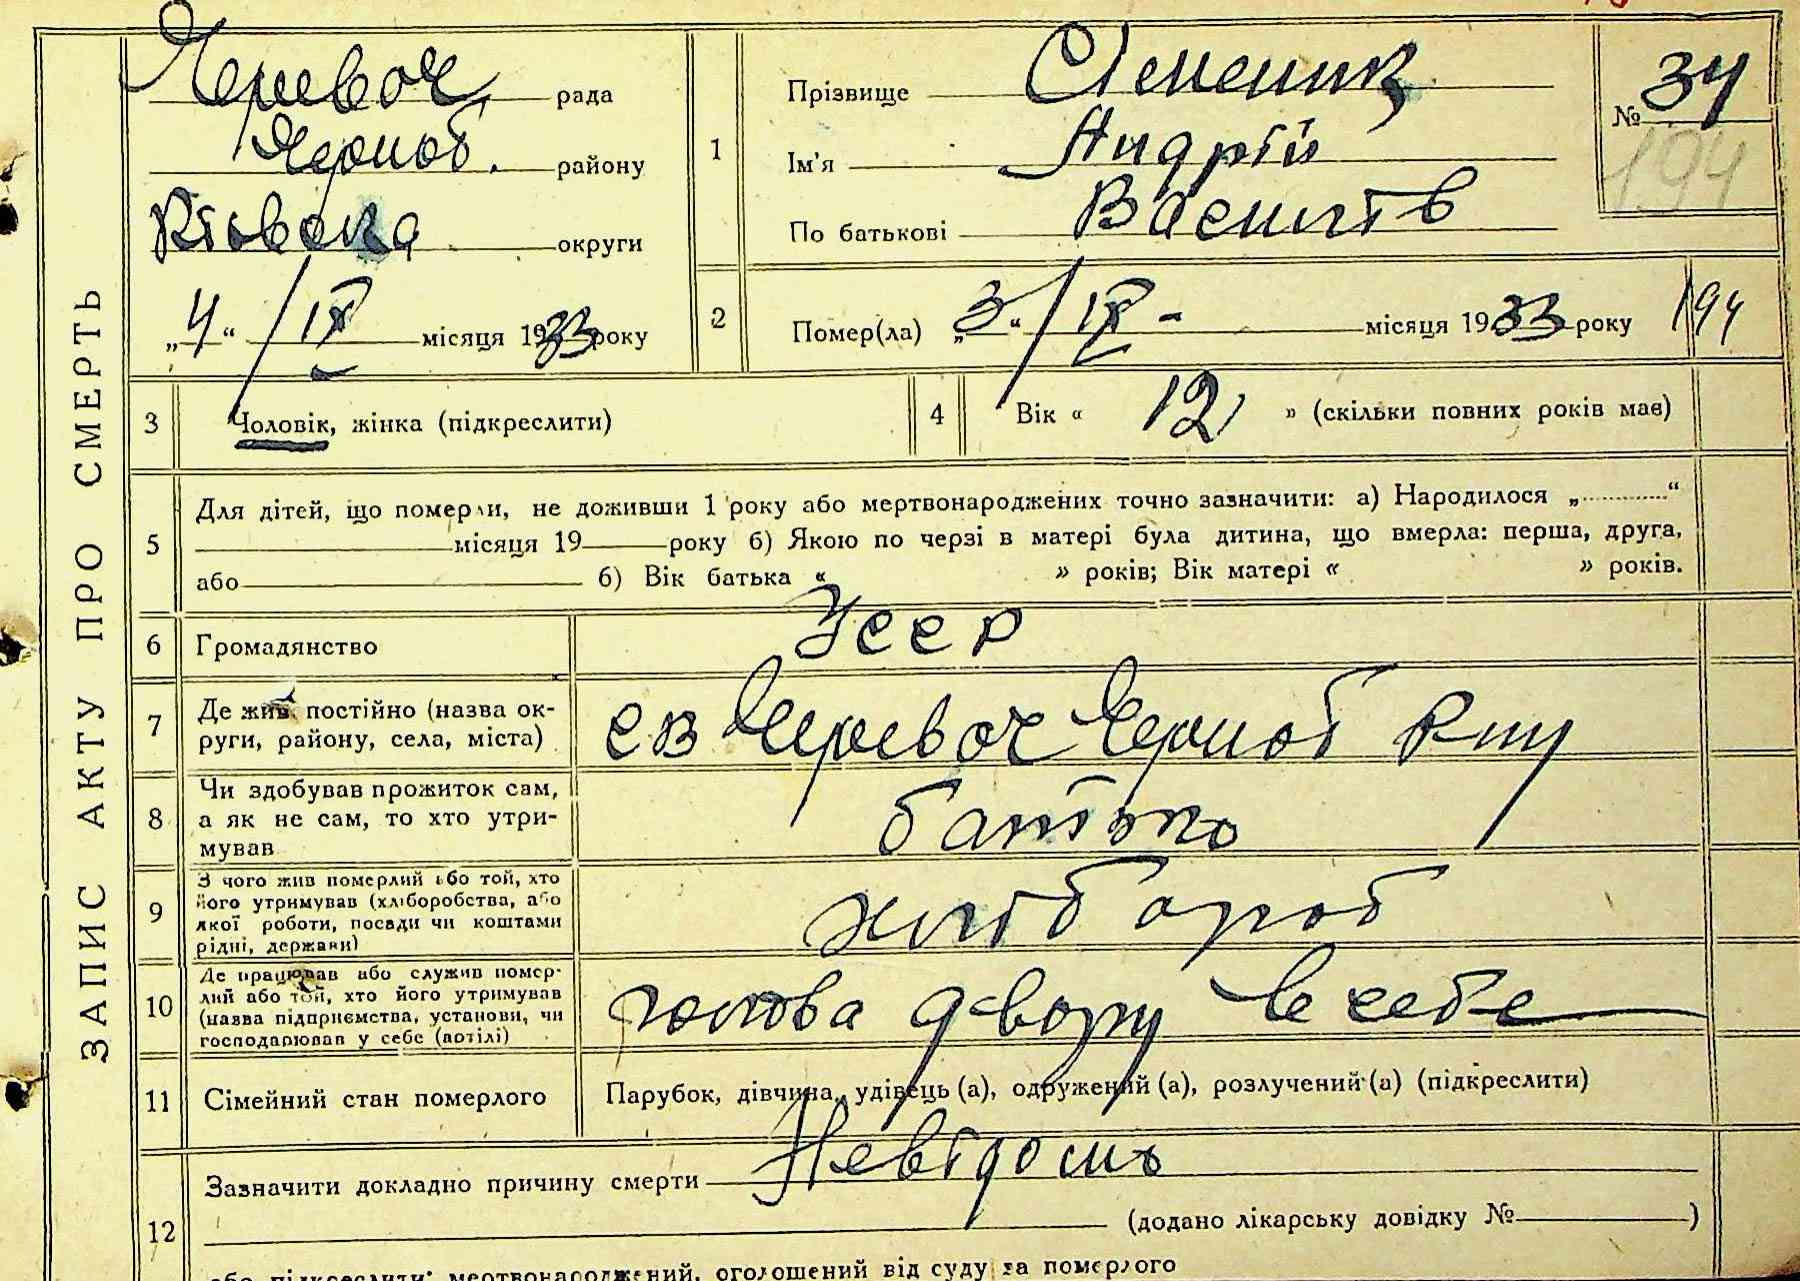 ЗАПИС АКТУ ПРО СМЕРТЬ
Черевоч рада
Чорноб. району
Київська округи
„4“ IX місяця 1933 року
1
Прізвище
Ім'я Андрій
По батькові Василів
№ 34
194
2
Помер(ла) „3“ IX - місяця 1933 року
194
3
Чоловік, жінка (підкреслити)
4
Вік « 12 » (скільки повних років має)
5
Для дітей, що померли, не доживши 1 року або мертвонароджених точно зазначити: а) Народилося „............“
місяця 19 року б) Якою по черзі в матері була дитина, що вмерла: перша, друга,
або б) Вік батька « » років; Вік матері « » років.
6
Громадянство
Усср
7
Де жив постійно (назва ок-
руги, району, села, міста)
Черевоч Чорноб
8
Чи здобував прожиток сам,
а як не сам, то хто утри-
мував
батько
9
З чого жив померлий або той, хто
його утримував (хліборобства, або
якої роботи, посади чи коштами
рідні, держави)
хлібороб
10
Де працював або служив помер-
лий або той, хто його утримував
(назва підприємства, установи, чи
господарював у себе (артілі)
голова двору в себе
11
Сімейний стан померлого
Парубок, дівчина, удівець (а), одружений (а), розлучений (а) (підкреслити)
12
Зазначити докладно причину смерти Невідомо
(додано лікарську довідку № )
або підкреслити: мертвонароджений, оголошений від суду за померлого